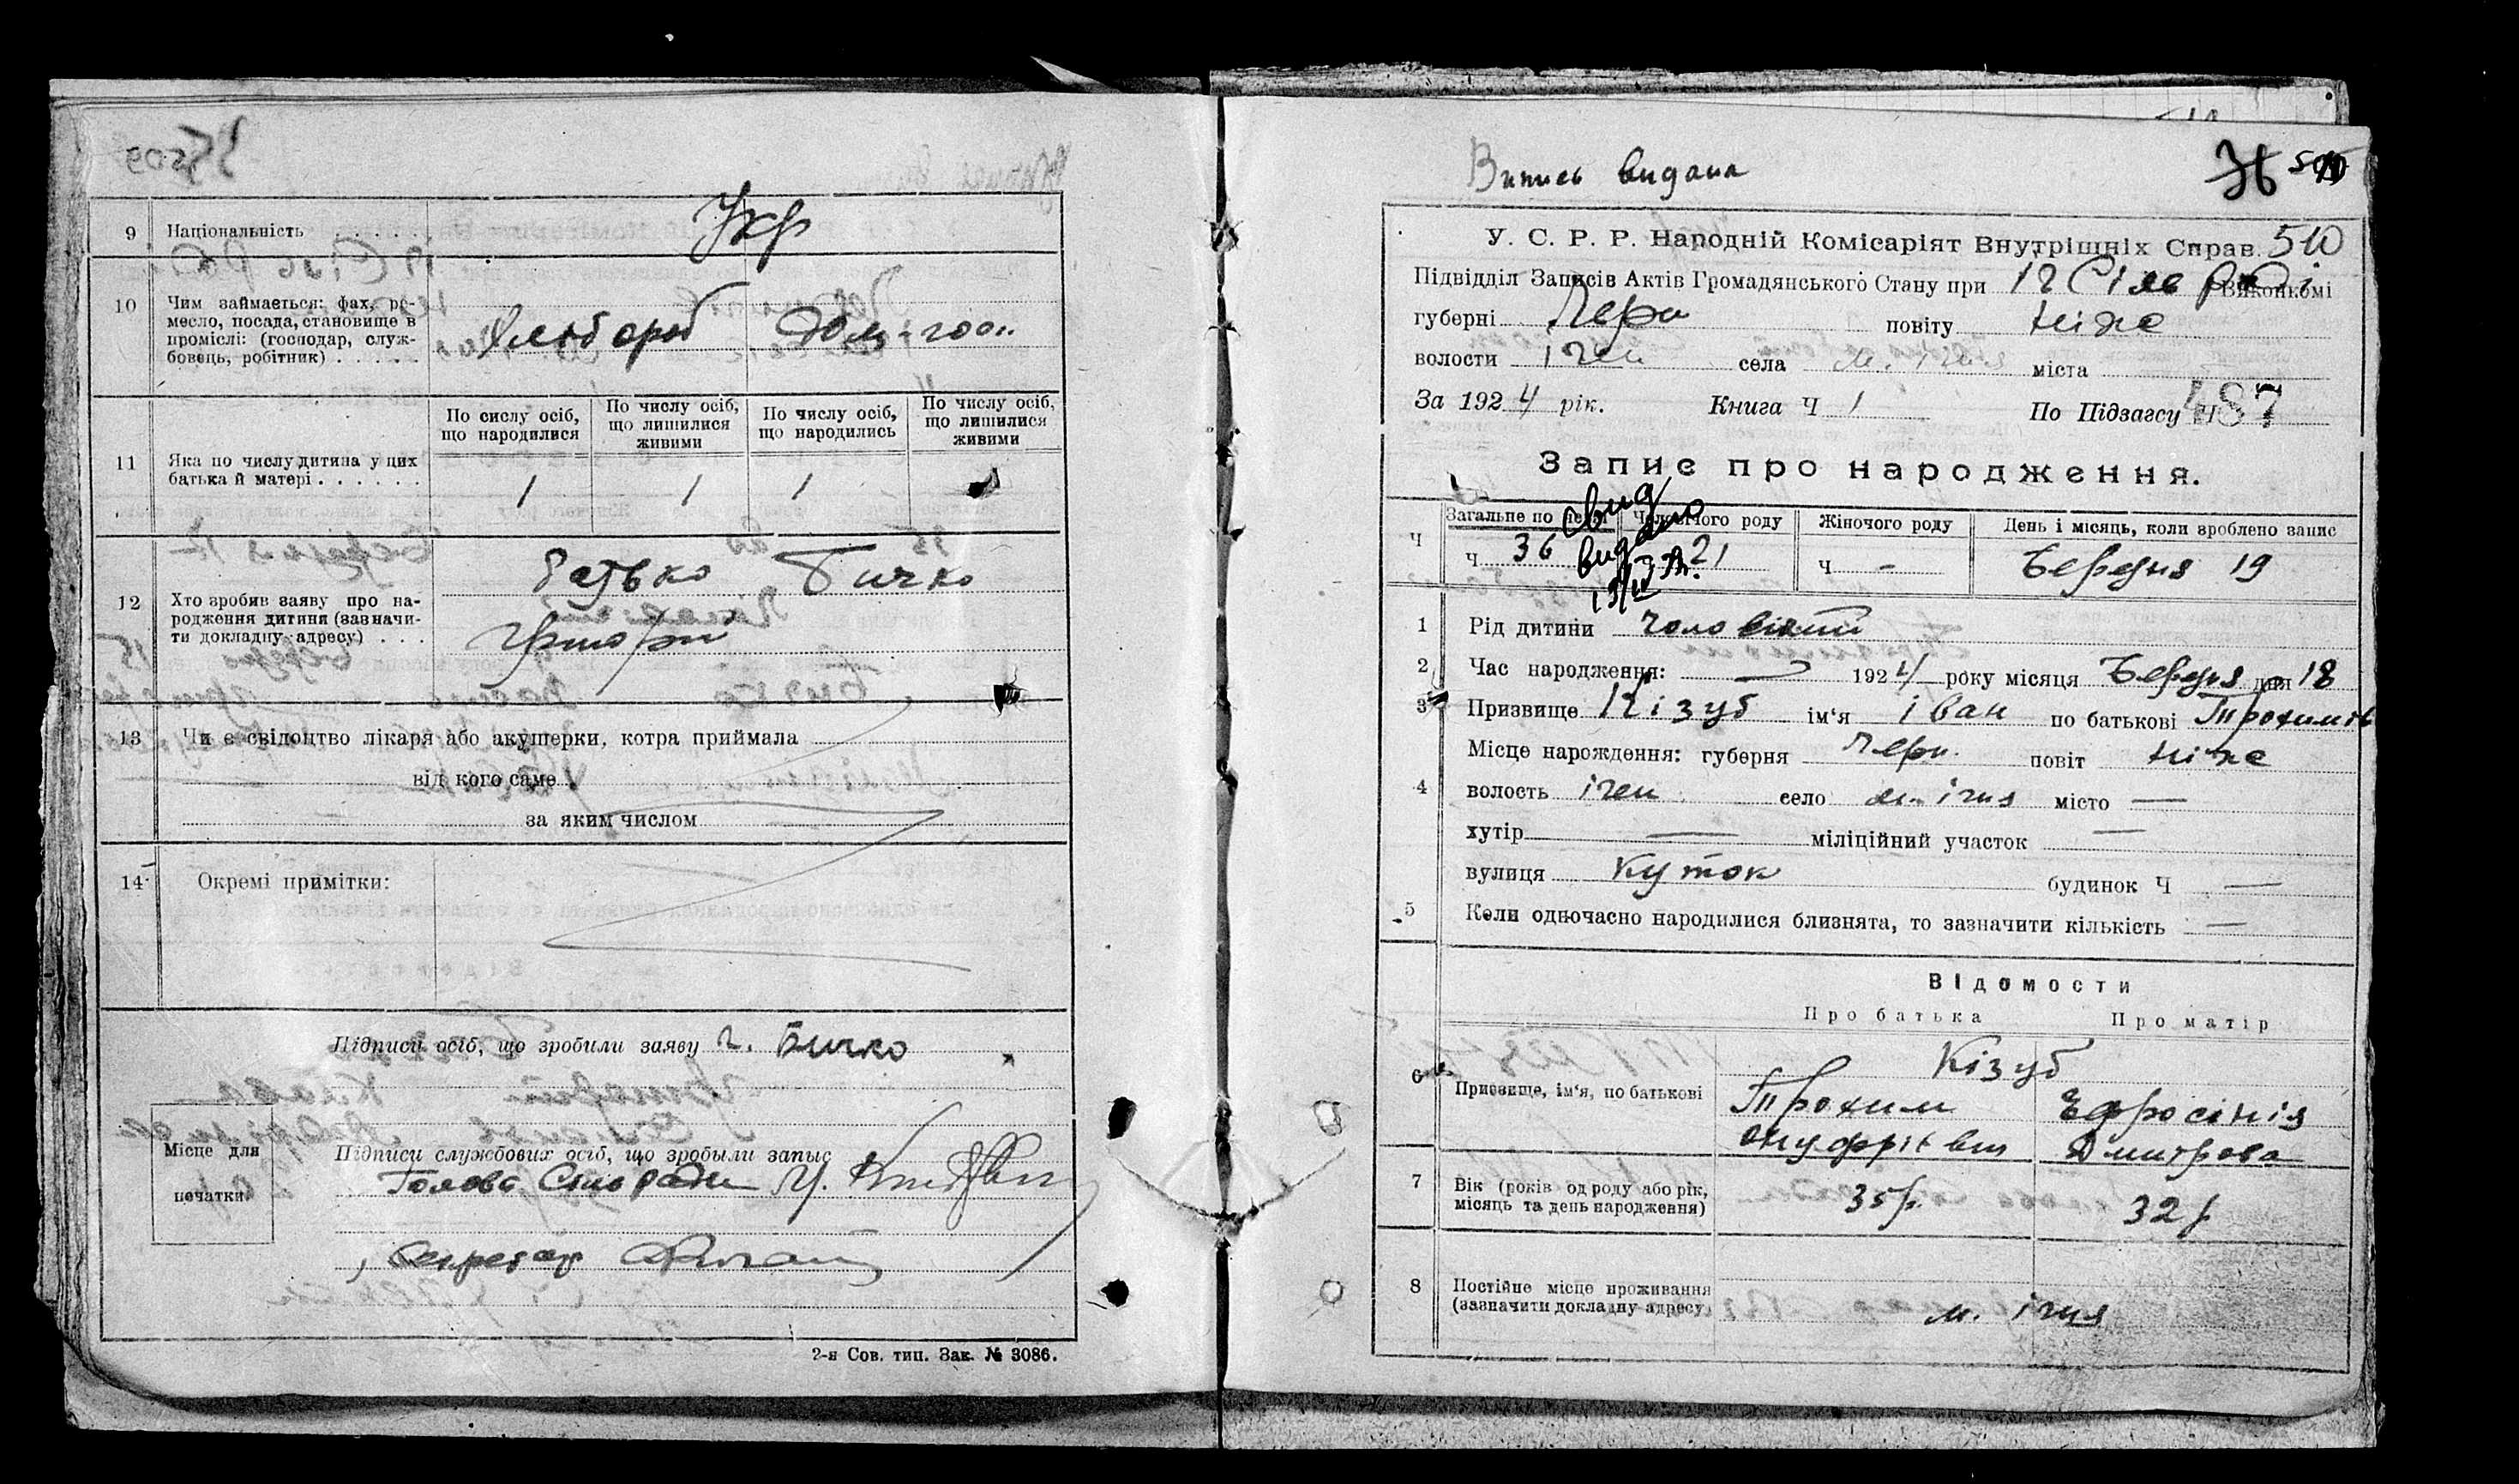 9 Національність . . . . . . Укр
10 Чим займається: фах, ре-
месло, посада, становище в
проміслі: (господар, служ-
бовець, робітник) . . . . .
Хлібороб Дом-госп.
По сислу осіб, що народилися
По числу осіб, що лишилися живими
По числу осіб, що народились
По числу осіб, що лишилися живими
11 Яка по числу дитина у цих
батька й матері . . . . . .
1 1 1
12 Хто зробив заяву про на-
родження дитини (зазначи-
ти докладну адресу) . . .
Батько Бичко
Григорій
13 Чи є свідоцтво лікаря або акушерки, котра приймала
від кого саме
за яким числом
14 Окремі примітки:
Підписи осіб, що зробили заяву Г. Бичко
Місце для
печатки
Підписи службових осіб, що зробыли запыс
Голова
Секретар
2-я Сов. тип. Зак. № 3086.
Випись видана
36
У. С. Р. Р. Народній Комісаріят Внутрішніх Справ. 510
Підвідділ Записів Актів Громадянського Стану при Виконкомі
губерні Черн повіту Ніже
волости Ічен села м. Ічня міста
За 1924 рік. Книга Ч 1 По Підзагсу Ч 487
Запис про народження.
Загальне по Чоловічого роду Жіночого роду День і місяць, коли зроблено запис
Ч Ч 36 21 Ч - Березня 19
видано
1 Рід дитини Чоловічий
2 Час народження: 1924 року місяця Березня дня 18
3 Призвище Кізуб ім'я Іван по батькові Трохимов
4 Місце народження: губерня Черн. повіт Ніже
волость Ічен село м. Ічня місто —
хутір — міліційний участок —
вулиця Куток будинок Ч —
5 Коли одночасно народилися близнята, то зазначити кількість —
Відомости
Про батька Про матір
6 Призвище, ім'я, по батькові
Кізуб
Трохим Ефросінія
Онуфрієвич Дмитрова
7 Вік (років од роду або рік,
місяць та день народження)
35 р. 32 р
8 Постійне місце проживання
(зазначити докладну адресу)
м. Ічня